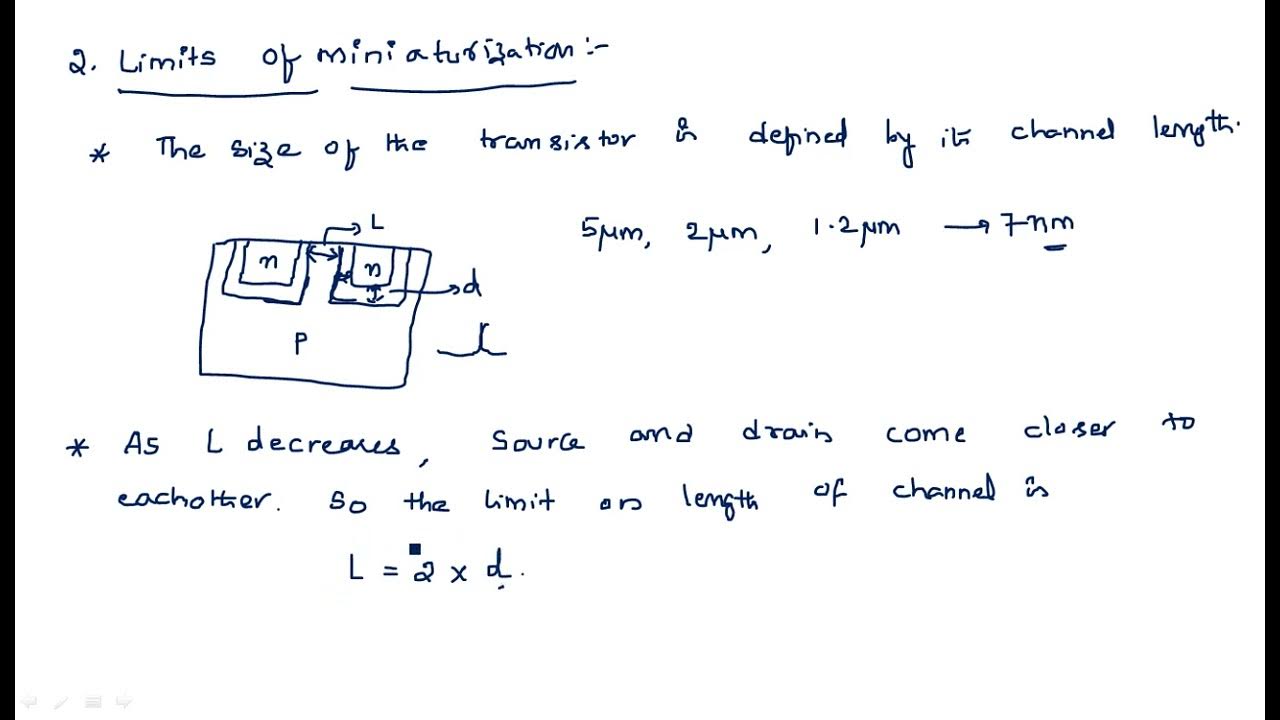 2. Limits of miniaturization:-
* The size of the transistor is defined by its channel length.
L
5μm, 2μm, 1.2μm → 7nm
n
n
d
P
* As L decreases, Source and drain come closer to
eachother. So the limit on length of channel is
L = 2 x d.